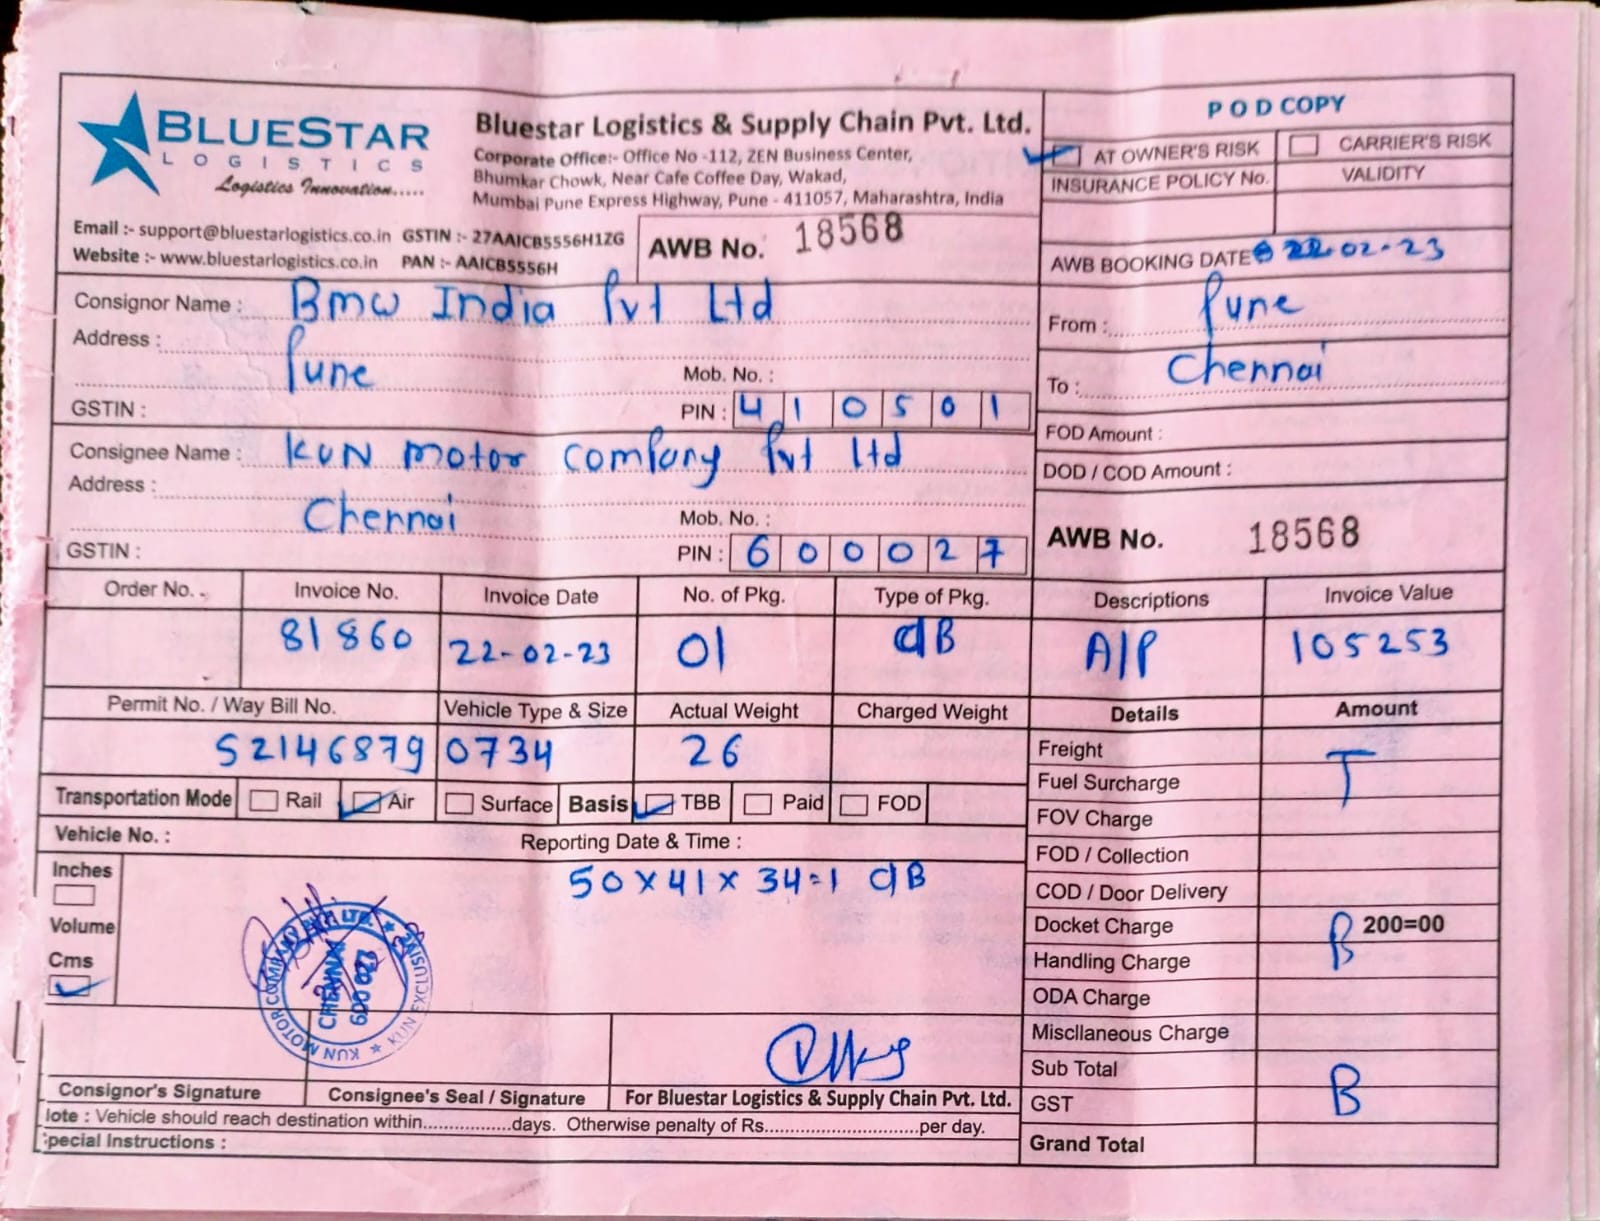 BLUESTAR
LOGISTICS
Logistics Innovation.....
Bluestar Logistics & Supply Chain Pvt. Ltd.
Corporate Office:- Office No -112, ZEN Business Center,
Bhumkar Chowk, Near Cafe Coffee Day, Wakad,
Mumbai Pune Express Highway, Pune - 411057, Maharashtra, India
POD COPY
AT OWNER'S RISK CARRIER'S RISK
INSURANCE POLICY No. VALIDITY
Email :- support@bluestarlogistics.co.in GSTIN :- 27AAICB5556H1ZG
Website :- www.bluestarlogistics.co.in PAN :- AAICB5556H
AWB No. 18568
AWB BOOKING DATE 22-02-23
Consignor Name : Bmw India Pvt Ltd
Address :
Pune Mob. No. :
GSTIN : PIN : 410501
From : Pune
To : Chennai
FOD Amount :
DOD / COD Amount :
Consignee Name : KUN motor Company Pvt Ltd
Address :
Chennai Mob. No. :
GSTIN : PIN : 600027
AWB No. 18568
Order No. Invoice No. Invoice Date No. of Pkg. Type of Pkg. Descriptions Invoice Value
81860 22-02-23 01 CB A/P 105253
Permit No. / Way Bill No. Vehicle Type & Size Actual Weight Charged Weight Details Amount
S21468790734 26
Transportation Mode Rail Air Surface Basis TBB Paid FOD
Vehicle No. : Reporting Date & Time :
Inches
Volume
Cms
50 x 41 x 34=1 CB
KUN MOTOR COMPANY LTD. ★ KUN EXCLUSIVE ★
CHENNAI
600 027
Freight T
Fuel Surcharge
FOV Charge
FOD / Collection
COD / Door Delivery
Docket Charge 200=00
Handling Charge B
ODA Charge
Miscllaneous Charge
Sub Total
GST B
Grand Total
Consignor's Signature Consignee's Seal / Signature For Bluestar Logistics & Supply Chain Pvt. Ltd.
lote : Vehicle should reach destination within................days. Otherwise penalty of Rs............................per day.
pecial Instructions :